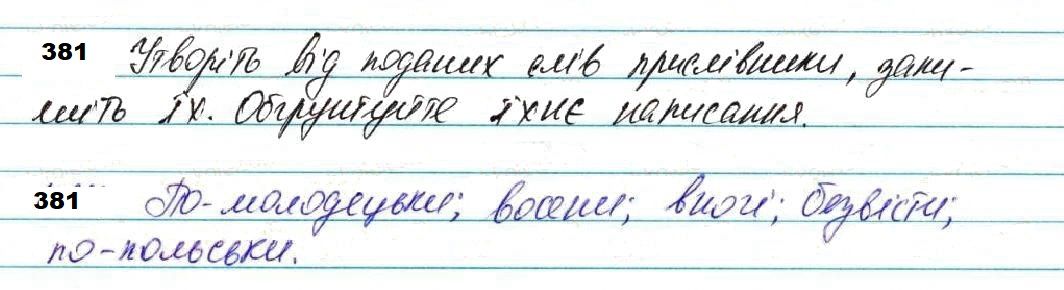 381 Утворіть від поданих слів прислівники, запи-
шіть їх. Обґрунтуйте їхнє написання.
381 По-молодецьки; восени; вночі; безвісти;
по-польськи.